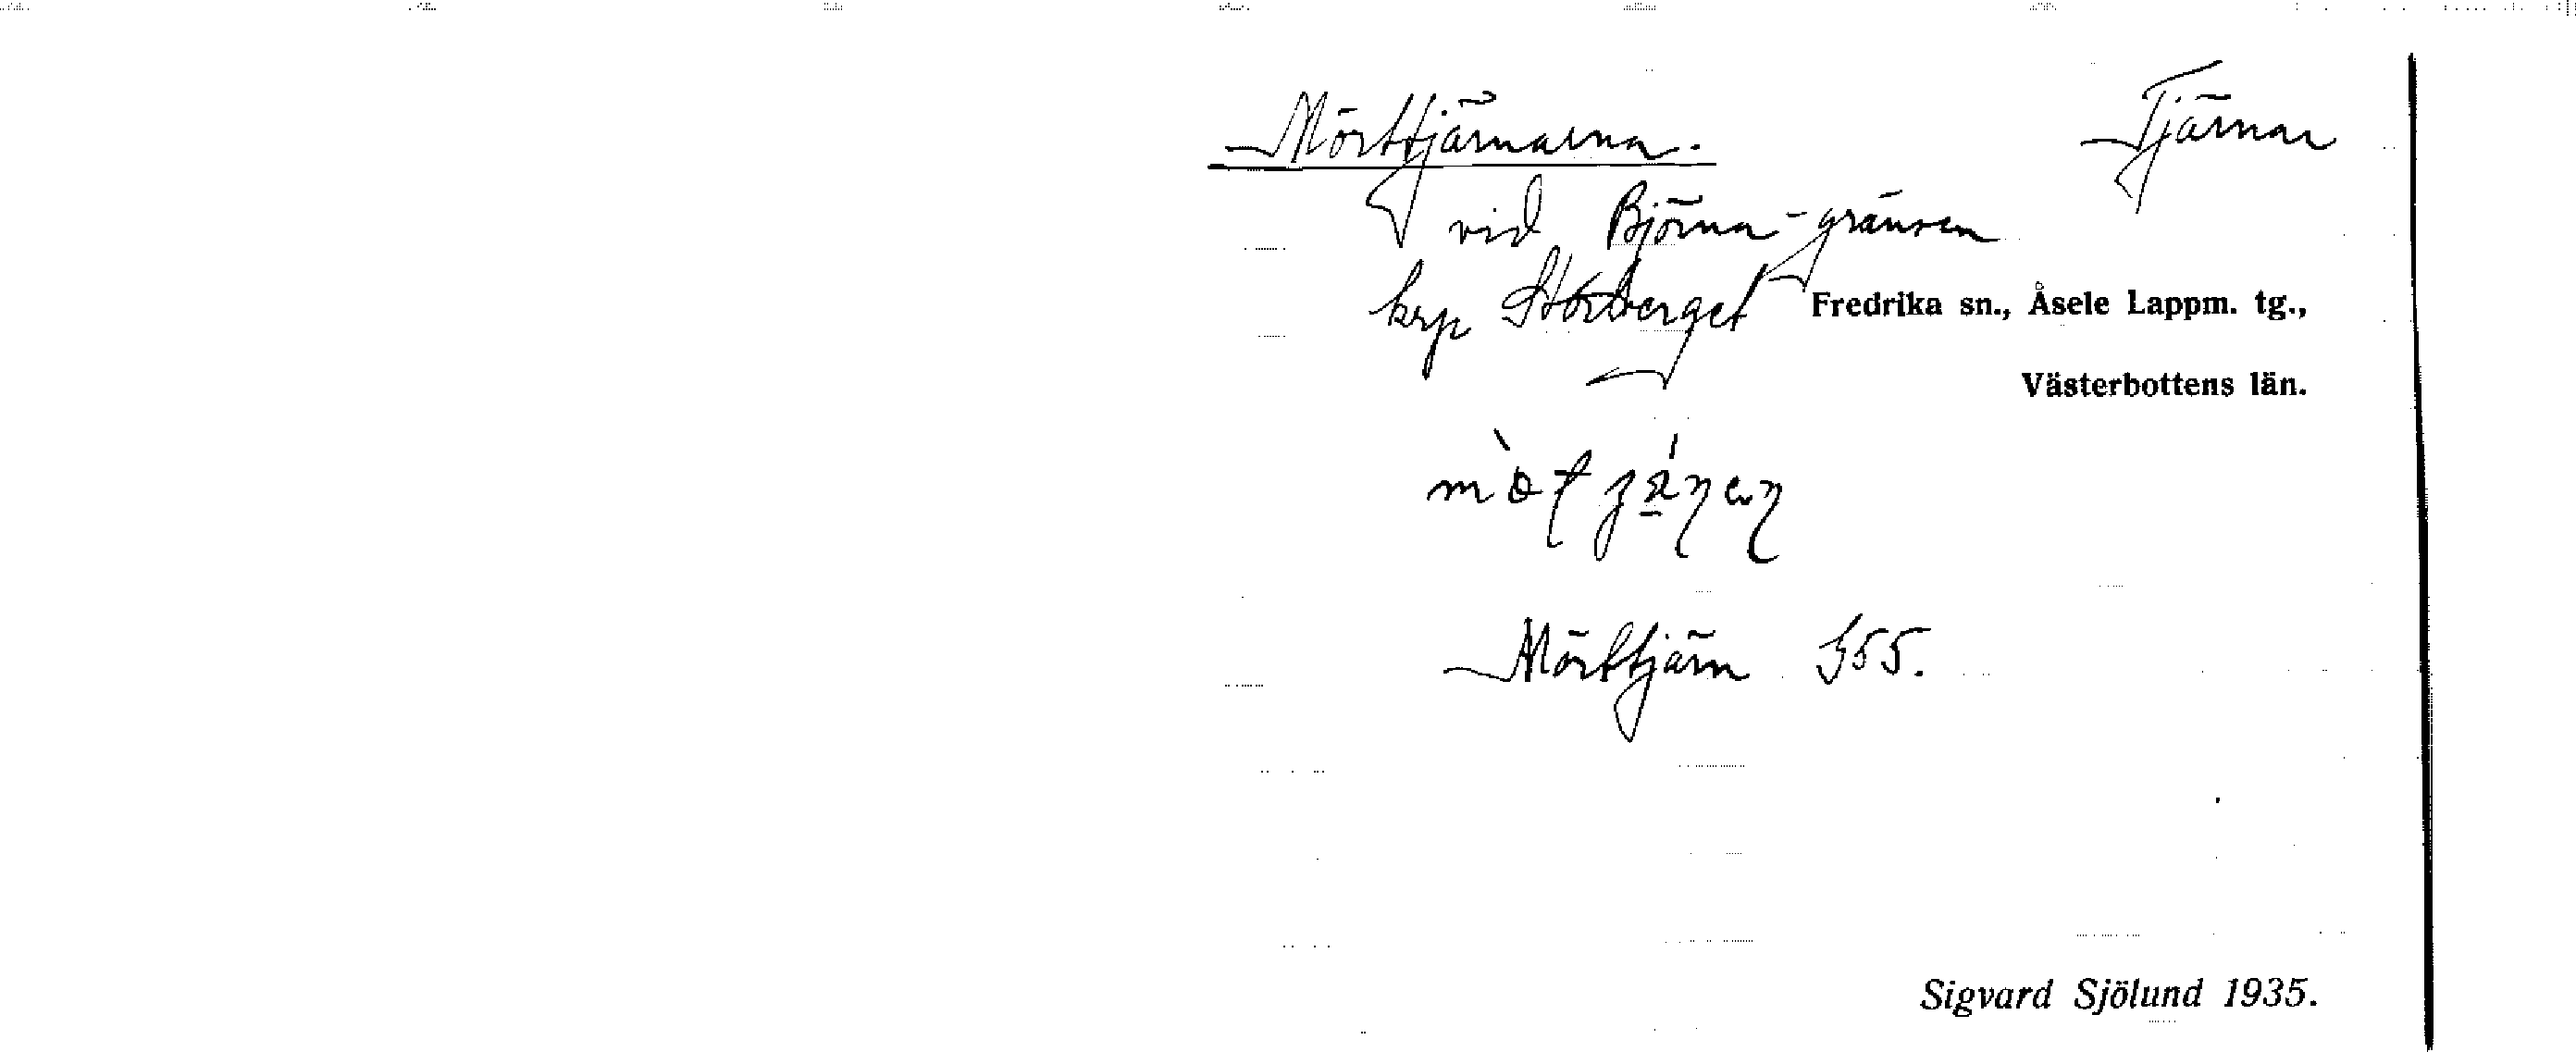 Mörttjärnarna. Tjärnar
vid Björna-gränsen
krp Storberget Fredrika sn., Åsele Lappm. tg.,
Västerbottens län.
Mörttjärn G55.
Sigvard Sjölund 1935.